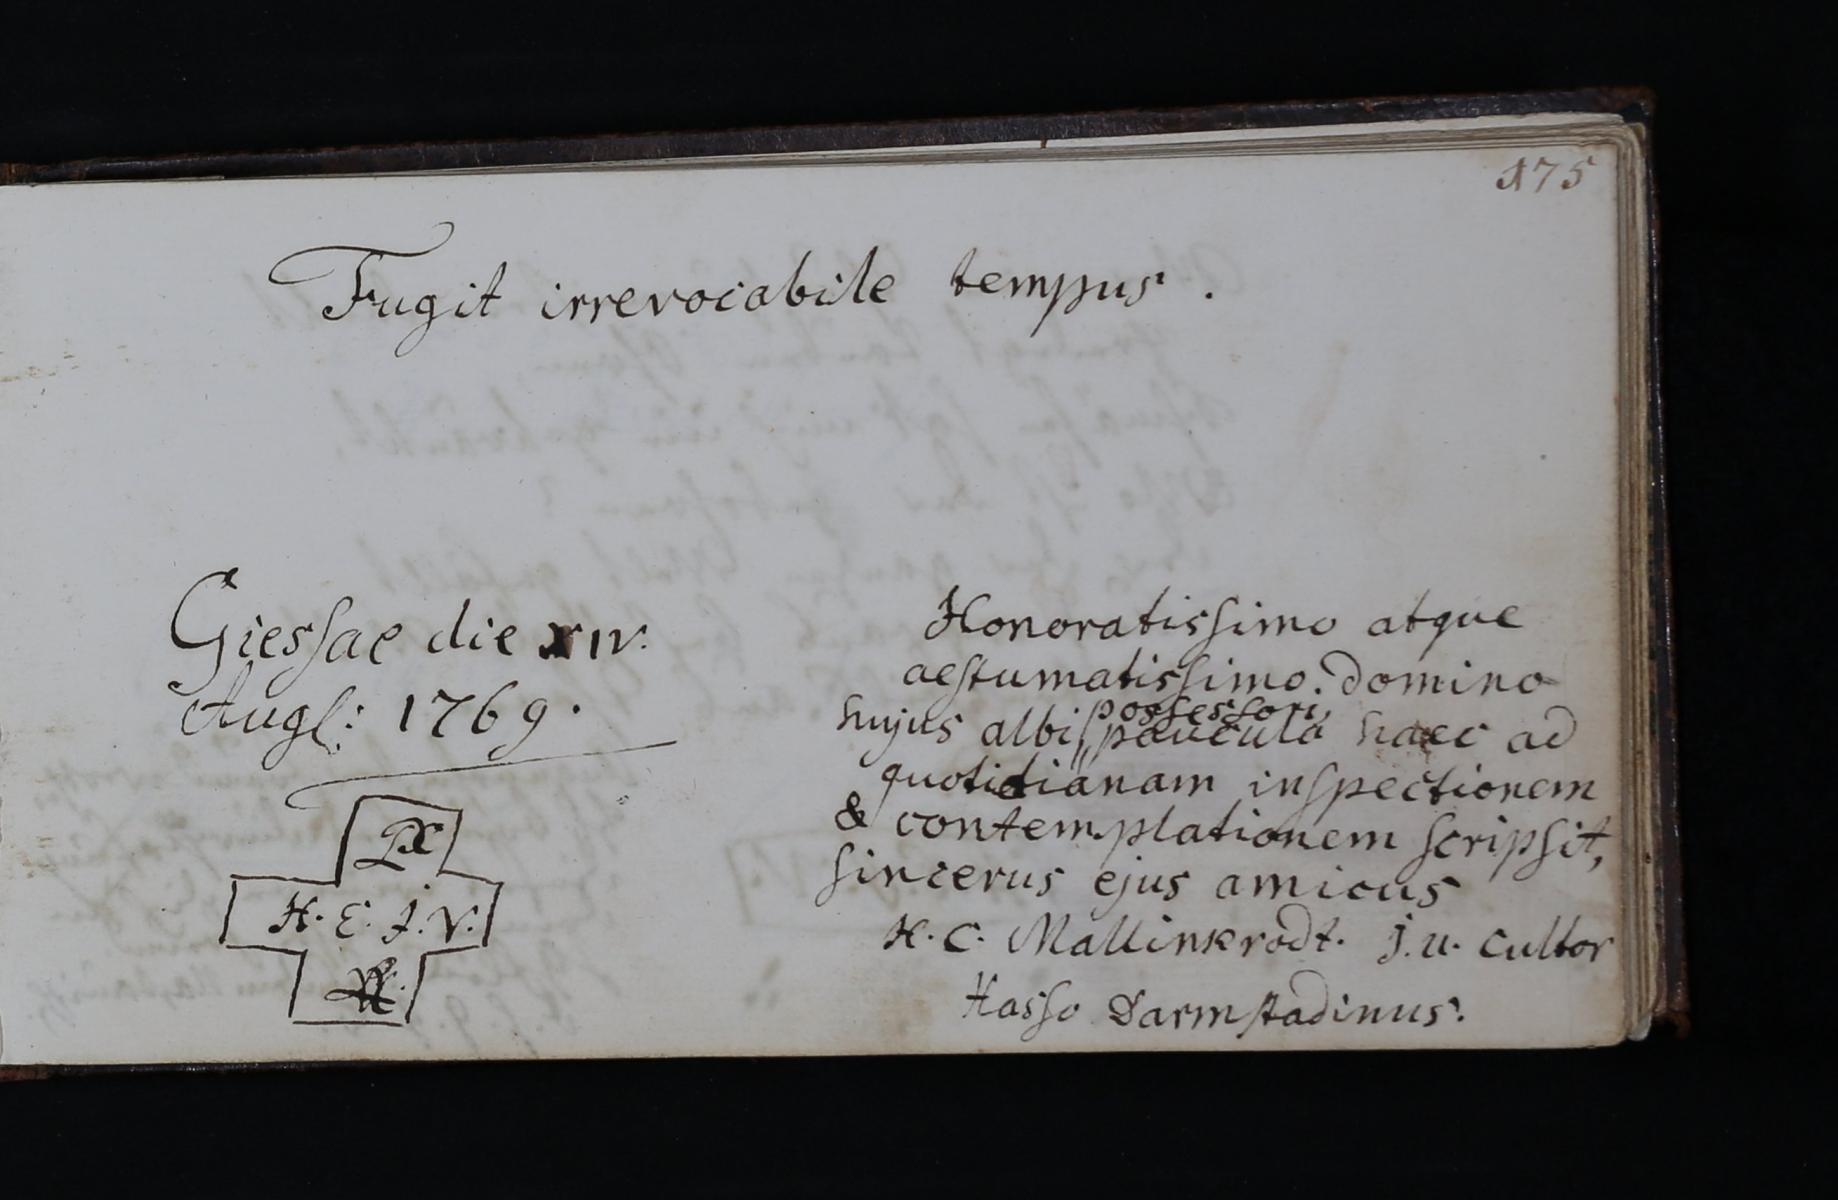 175
Fugit irrevocabile tempus.
Giessae die XIV.
Augs: 1769.
H. E. J. V.
Honoratissimo atque
aestumatissimo. Domino
hujus albi possessori,
paucula haec ad
quotidianam inspectionem
& contemplationem scripsit,
sincerus ejus amicus
H. C. Mallinkrodt. J. u. cultor
Hasso Darmstadinus.